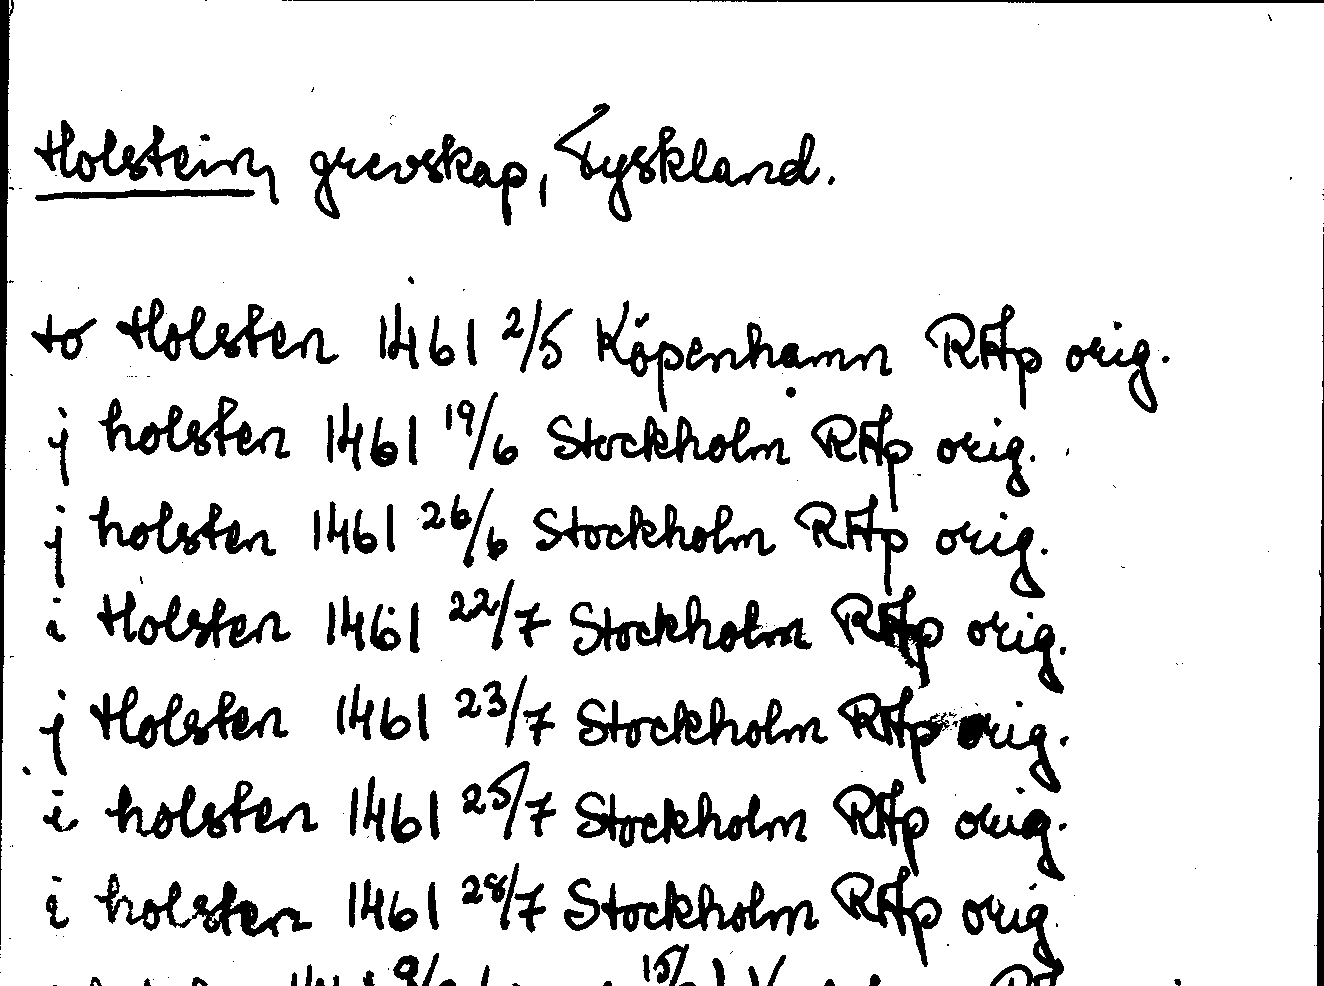 Holstein, grevskap, Tyskland.
to Holsten 1461 2/5 Köpenhamn RAp orig.
j holsten 1461 19/6 Stockholm RAp orig.
j holsten 1461 26/6 Stockholm RAp orig.
i Holsten 1461 22/7 Stockholm RAp orig.
j Holsten 1461 23/7 Stockholm RAp orig.
i holsten 1461 25/7 Stockholm RAp orig.
i holsten 1461 28/7 Stockholm RAp orig